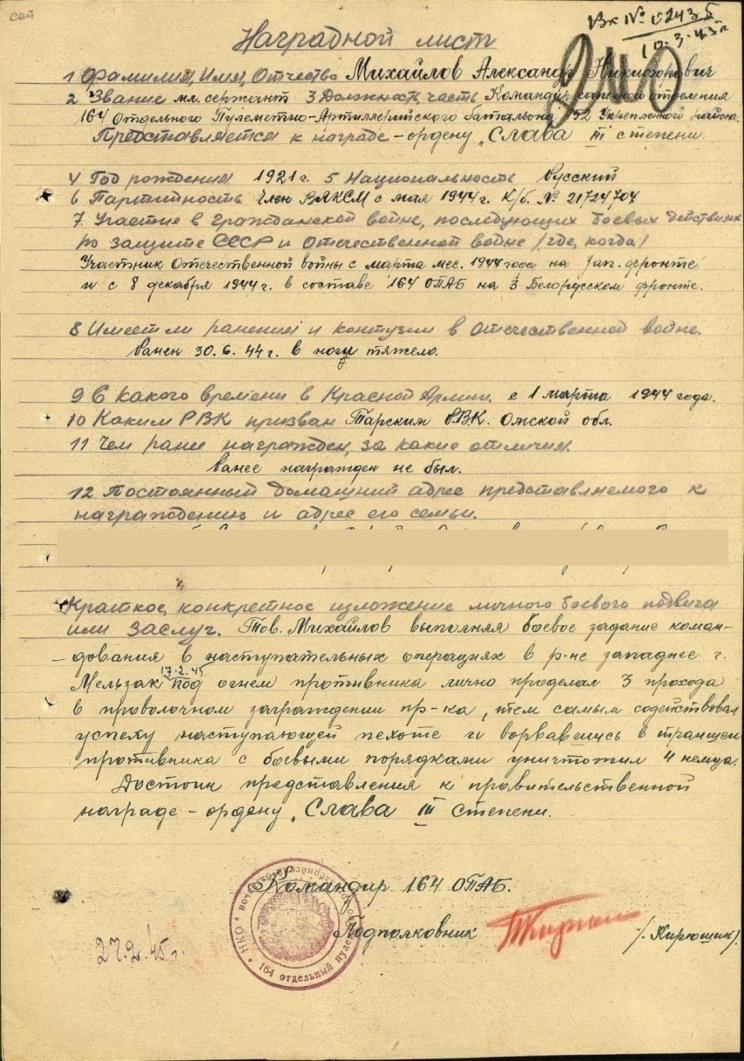 Вх № 02435
10.3.45г
Наградной лист
1 Фамилия, Имя, Отчество Михайлов Александр Никифорович
2 Звание мл. сержант 3 Должность, часть Командир отделения
164 Отдельного Пулеметно-Артиллерийского батальона 152 Укрепленного района.
Представляется к награде - ордену "Слава III степени.
4 Год рождения 1921г. 5 Национальность Русский
6 Партийность Член ВЛКСМ с мая 1944г. К/б. № 21724704
7 Участие в гражданской войне, последующих боевых действиях
по защите СССР и Отечественной войне /где, когда/
Участник Отечественной войны с марта мес. 1944 года на Зап. фронте
и с 8 декабря 1944г. в составе 164 ОПАБ на 3 Белорусском фронте.
8 Имеет ли ранения и контузии в Отечественной войне.
Ранен 30.6.44г. в ногу тяжело.
9 С какого времени в Красной Армии с 1 марта 1944 года.
10 Каким РВК призван Тарским РВК. Омской обл.
11 Чем ранее награжден, за какие отличия
Ранее награжден не был.
12 Постоянный домашний адрес представляемого к
награждению и адрес его семьи.
Краткое, конкретное изложение личного боевого подвига
или заслуг. Тов. Михайлов выполняя боевое задание коман-
-дования в наступательных операциях в р-не западнее г.
Мельзак 17.2.45 под огнем противника лично проделал 3 прохода
в проволочном заграждении пр-ка, тем самым содействовал
успеху наступающей пехоте и ворвавшись в траншеи
противника с боевыми порядками уничтожил 4 немца.
Достоин представления к правительственной
награде - ордену "Слава III степени.
Командир 164 ОПАБ.
Подполковник /Кирюшин/.
27.2.45г.
НКО • 164 отдельный пуле